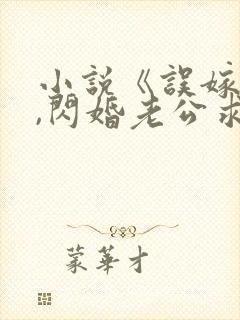 小說《誤嫁
,閃婚老公求
蒙華才